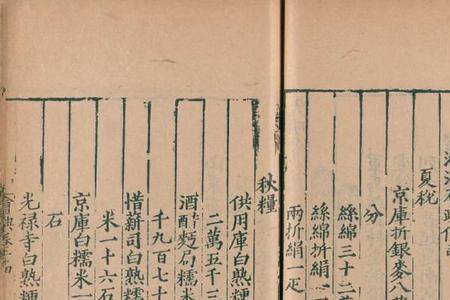 夏稅
京庫折銀麥八
分
絲綿三十二
絲綿折絹
兩折絹一疋
秋糧
供用庫白熟糯
二萬五千三
酒醋麪局糯米
千九百七十
惜薪司白熟糯
米一十六石
京庫白糯米一
石
光禄寺白熟糯